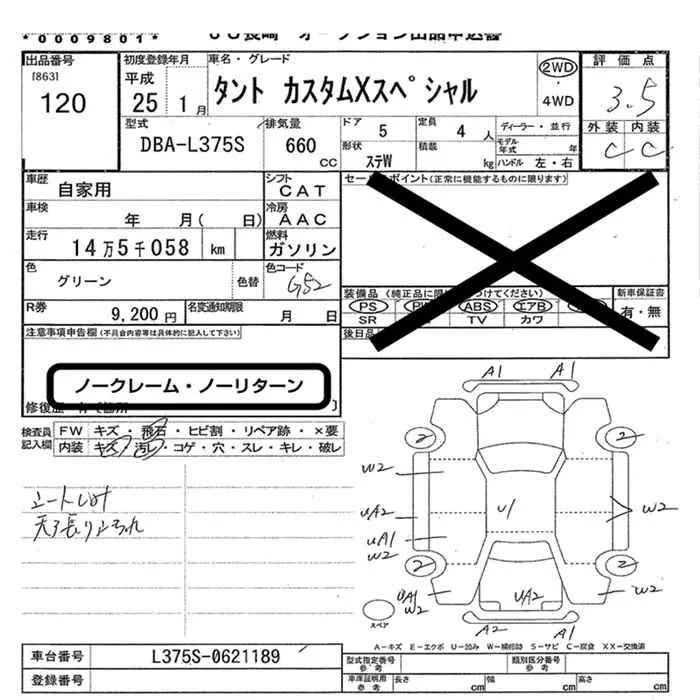 *0009801*
出品番号
[863]
120
初度登録年月
平成
25 1月
車名・グレード
タント カスタムXスペシャル
2WD
・
4WD
評価点
3.5
外装 内装
C C
型式
DBA-L375S
排気量
660
CC
ドア 5
定員 4 人
ディーラー・並行
形状
ステW
積載
kg
モデル年式 年
ハンドル 左・右
車歴
自家用
シフト
CAT
セー ポイント(正常に機能するものに限ります)
車検
年 月( 日)
冷房
AAC
走行
14万5千058 km
燃料
ガソリン
色
グリーン
色替
色コード
G52
R券
9,200円
名変通知期限
月 日
装備品(純正品に つけてください)
PS ABS エアB
SR TV カワ
新車保証書
有・無
後日品
注意事項申告欄(不具合内容等は具体的に記入して下さい)
ノークレーム・ノーリターン
修復歴
検査員記入欄
FW キズ・飛石・ヒビ割・リペア跡・×要
内装 キズ・汚レ・コゲ・穴・スレ・キレ・破レ
天張り
A1 A1
2 2
W2
UA2
UA1
W2
U1
W2
2 2
W2
W2
UA2
A2 A1
スペア
A-キズ E-エクボ U-凹み W-補修跡 S-サビ C-腐食 XX-交換済
車台番号
L375S-0621189
登録番号
型式指定番号
参考
類別区分番号
参考
車庫証明用
参考
長さ cm 幅 cm 高さ cm